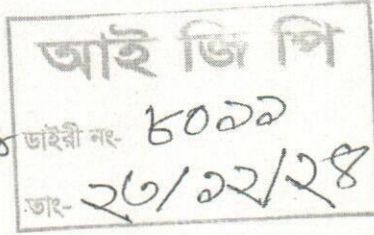 আই জি পি
ডাইরী নং- ৮০১১
তাং- ২৩/১২/২৪